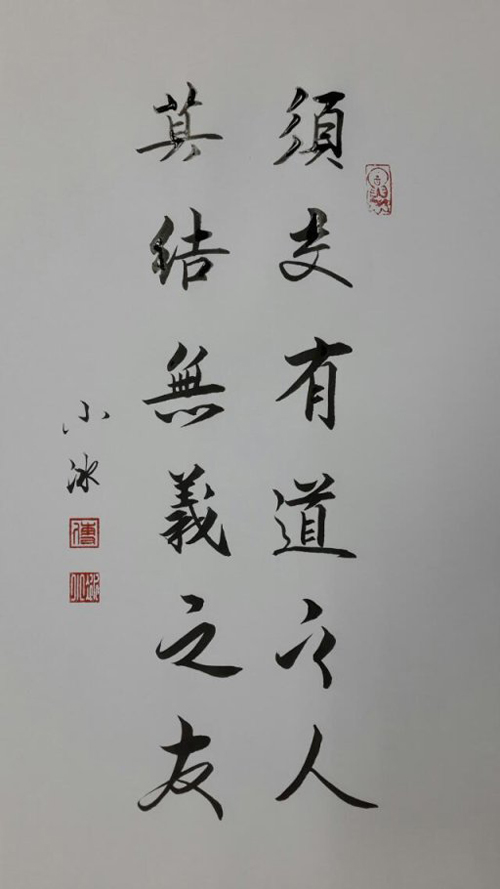 須交有道之人
莫結無義之友
小冰